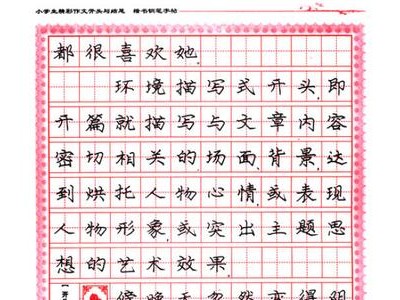 小学生精彩作文开头与结尾 楷书钢笔字帖
都很喜欢她.
环境描写式开头,即
开篇就描写与文章内容
密切相关的场面,背景,达
到烘托人物心情或表现
人物形象或突出主题思
想的艺术效果.
傍晚天忽然变得阴